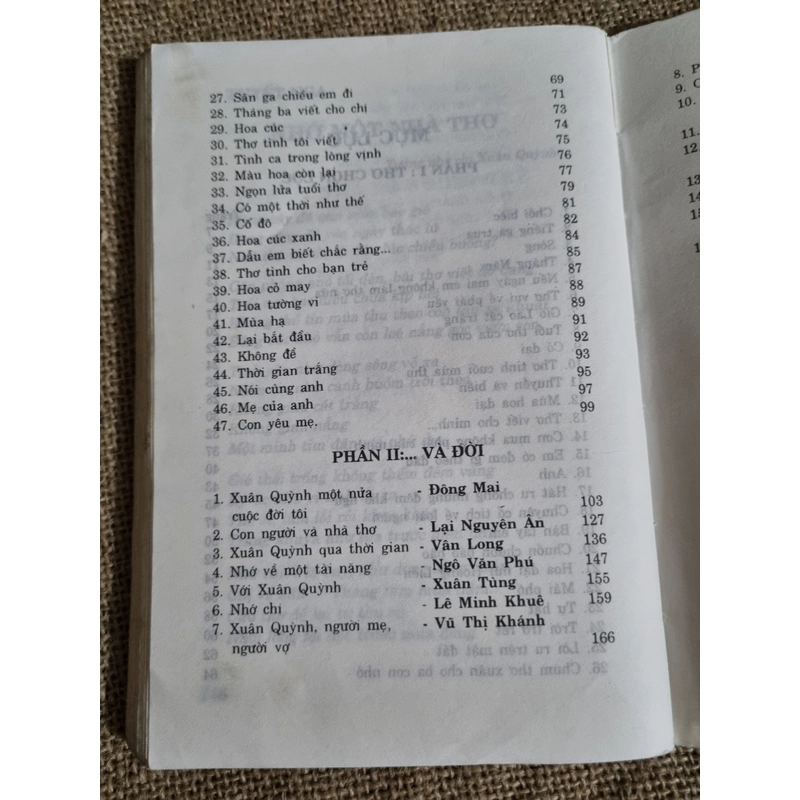 27. Sân ga chiều em đi 69
28. Tháng ba viết cho chị 71
29. Hoa cúc 73
30. Thơ tình tôi viết 74
31. Tình ca trong lòng vịnh 75
32. Màu hoa còn lại 76
33. Ngọn lửa tuổi thơ 77
34. Có một thời như thế 79
35. Cố đô 81
36. Hoa cúc xanh 82
37. Dẫu em biết chắc rằng... 84
38. Thơ tình cho bạn trẻ 85
39. Hoa cỏ may 87
40. Hoa tường vi 88
41. Mùa hạ 89
42. Lại bắt đầu 91
43. Không đề 92
44. Thời gian trắng 93
45. Nói cùng anh 95
46. Mẹ của anh 97
47. Con yêu mẹ. 99
PHẦN II:... VÀ ĐỜI
1. Xuân Quỳnh một nửa - Đông Mai
cuộc đời tôi 103
2. Con người và nhà thơ - Lại Nguyên Ân 127
3. Xuân Quỳnh qua thời gian - Vân Long 136
4. Nhớ về một tài năng - Ngô Văn Phú 147
5. Với Xuân Quỳnh - Xuân Tùng 155
6. Nhớ chị - Lê Minh Khuê 159
7. Xuân Quỳnh, người mẹ, - Vũ Thị Khánh
người vợ 166
8. P
9.
10.
11.
12
13
14
15